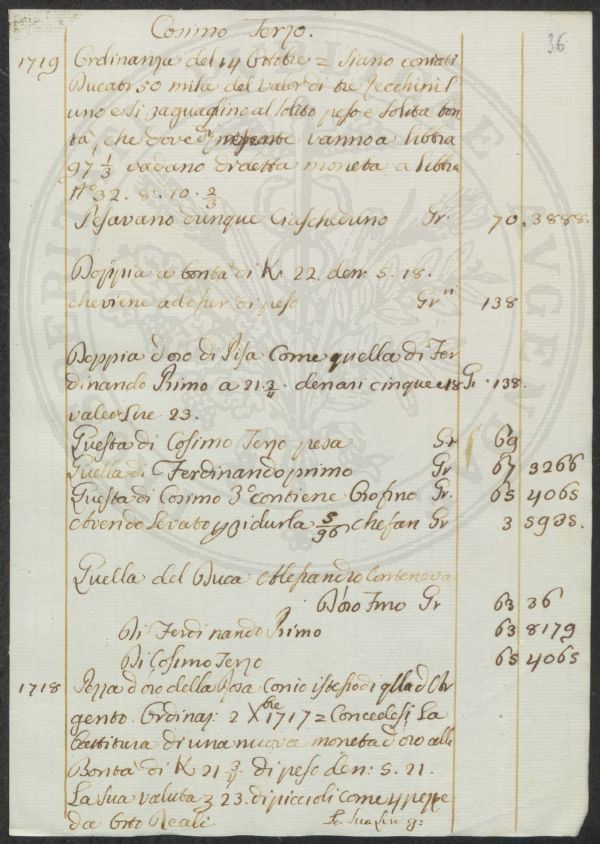 36
Cosimo Terzo.
1719 Ordinanza del 14 Ottobre = Siano coniati
Ducati 50 mila del valor di tre Zecchini l'
uno e si ragguaglino al solito peso e solita bon
tà, che dove di vanno a libbra
97 1/3 vadano di detta moneta a libbra
Nº 32. 8. 10. 2/3
Pesavano dunque Ciascheduno Gr. 70.3888.
Doppia a bontà di K 22. den 5. 18.
che viene ad esser di peso Gr 138
Doppia d'oro di Pisa Come quella di Fer
dinando Primo a 21 3/4. denari cinque e 18 Gr. 138.
vale Lire 23.
Questa di Cosimo Terzo pesa Gr 69
Quella di Ferdinando primo Gr 67 3266
Questa di Cosimo 3º contiene Oro fino Gr. 65 4065
Avendo levato p ridurla 5/96 che fan Gr 3 5935.
Quella del Duca Alesandro Conteneva
D'oro Fino Gr 63 36
Di Ferdinando Primo 63 8179
Di Cosimo Terzo 65 4065
1718 Pezza d'oro della Rosa Conio istesso di qlla d'Ar
gento. Ordinaz: 2 Xbre 1717 = Concedesi La
battitura di una nuova moneta d'oro alla
Bontà di K 21 3/4. di peso den: 5. 21.
La Sua valuta 23. di piccioli come pezze
da Otto Reali